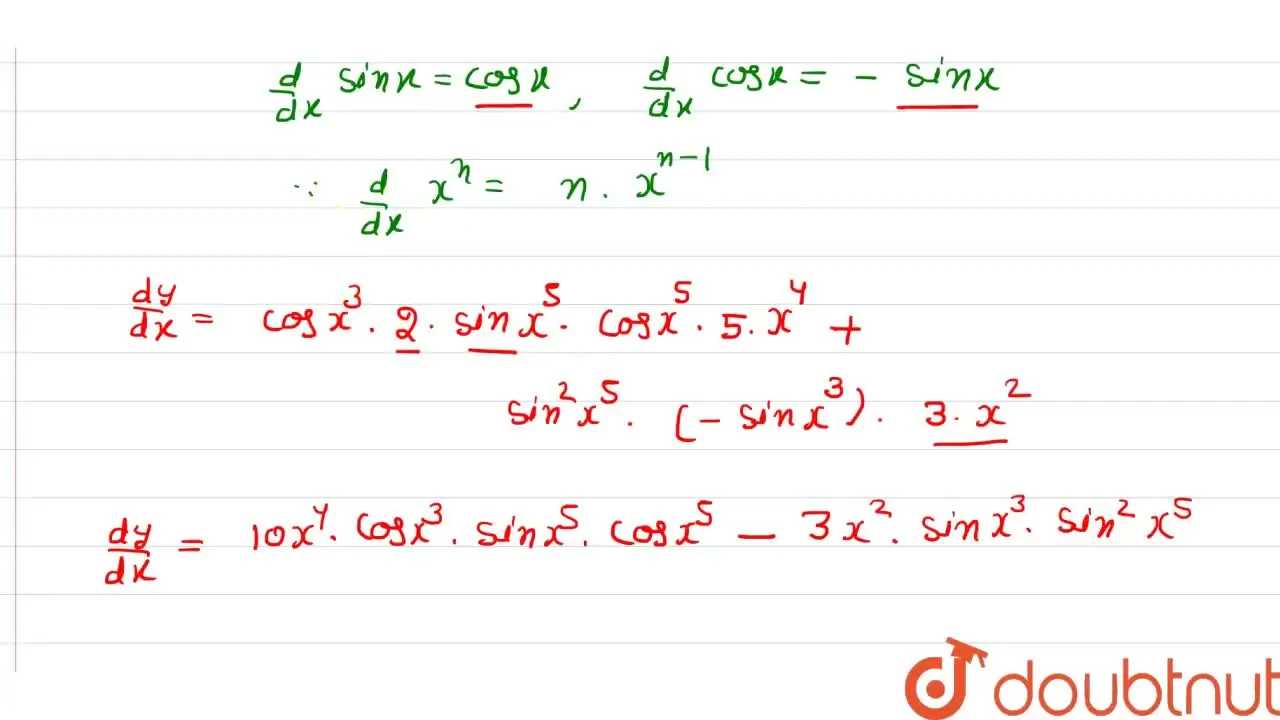 d/dx sinx = cosx , d/dx cosx = - sinx
∵ d/dx xⁿ = n . xⁿ⁻¹
dy/dx = cosx³ . 2 . sinx⁵ . cosx⁵ . 5 . x⁴ +
sin²x⁵ . (- sinx³) . 3 . x²
dy/dx = 10x⁴ . cosx³ . sinx⁵ . cosx⁵ - 3x² . sinx³ . sin²x⁵
doubtnut